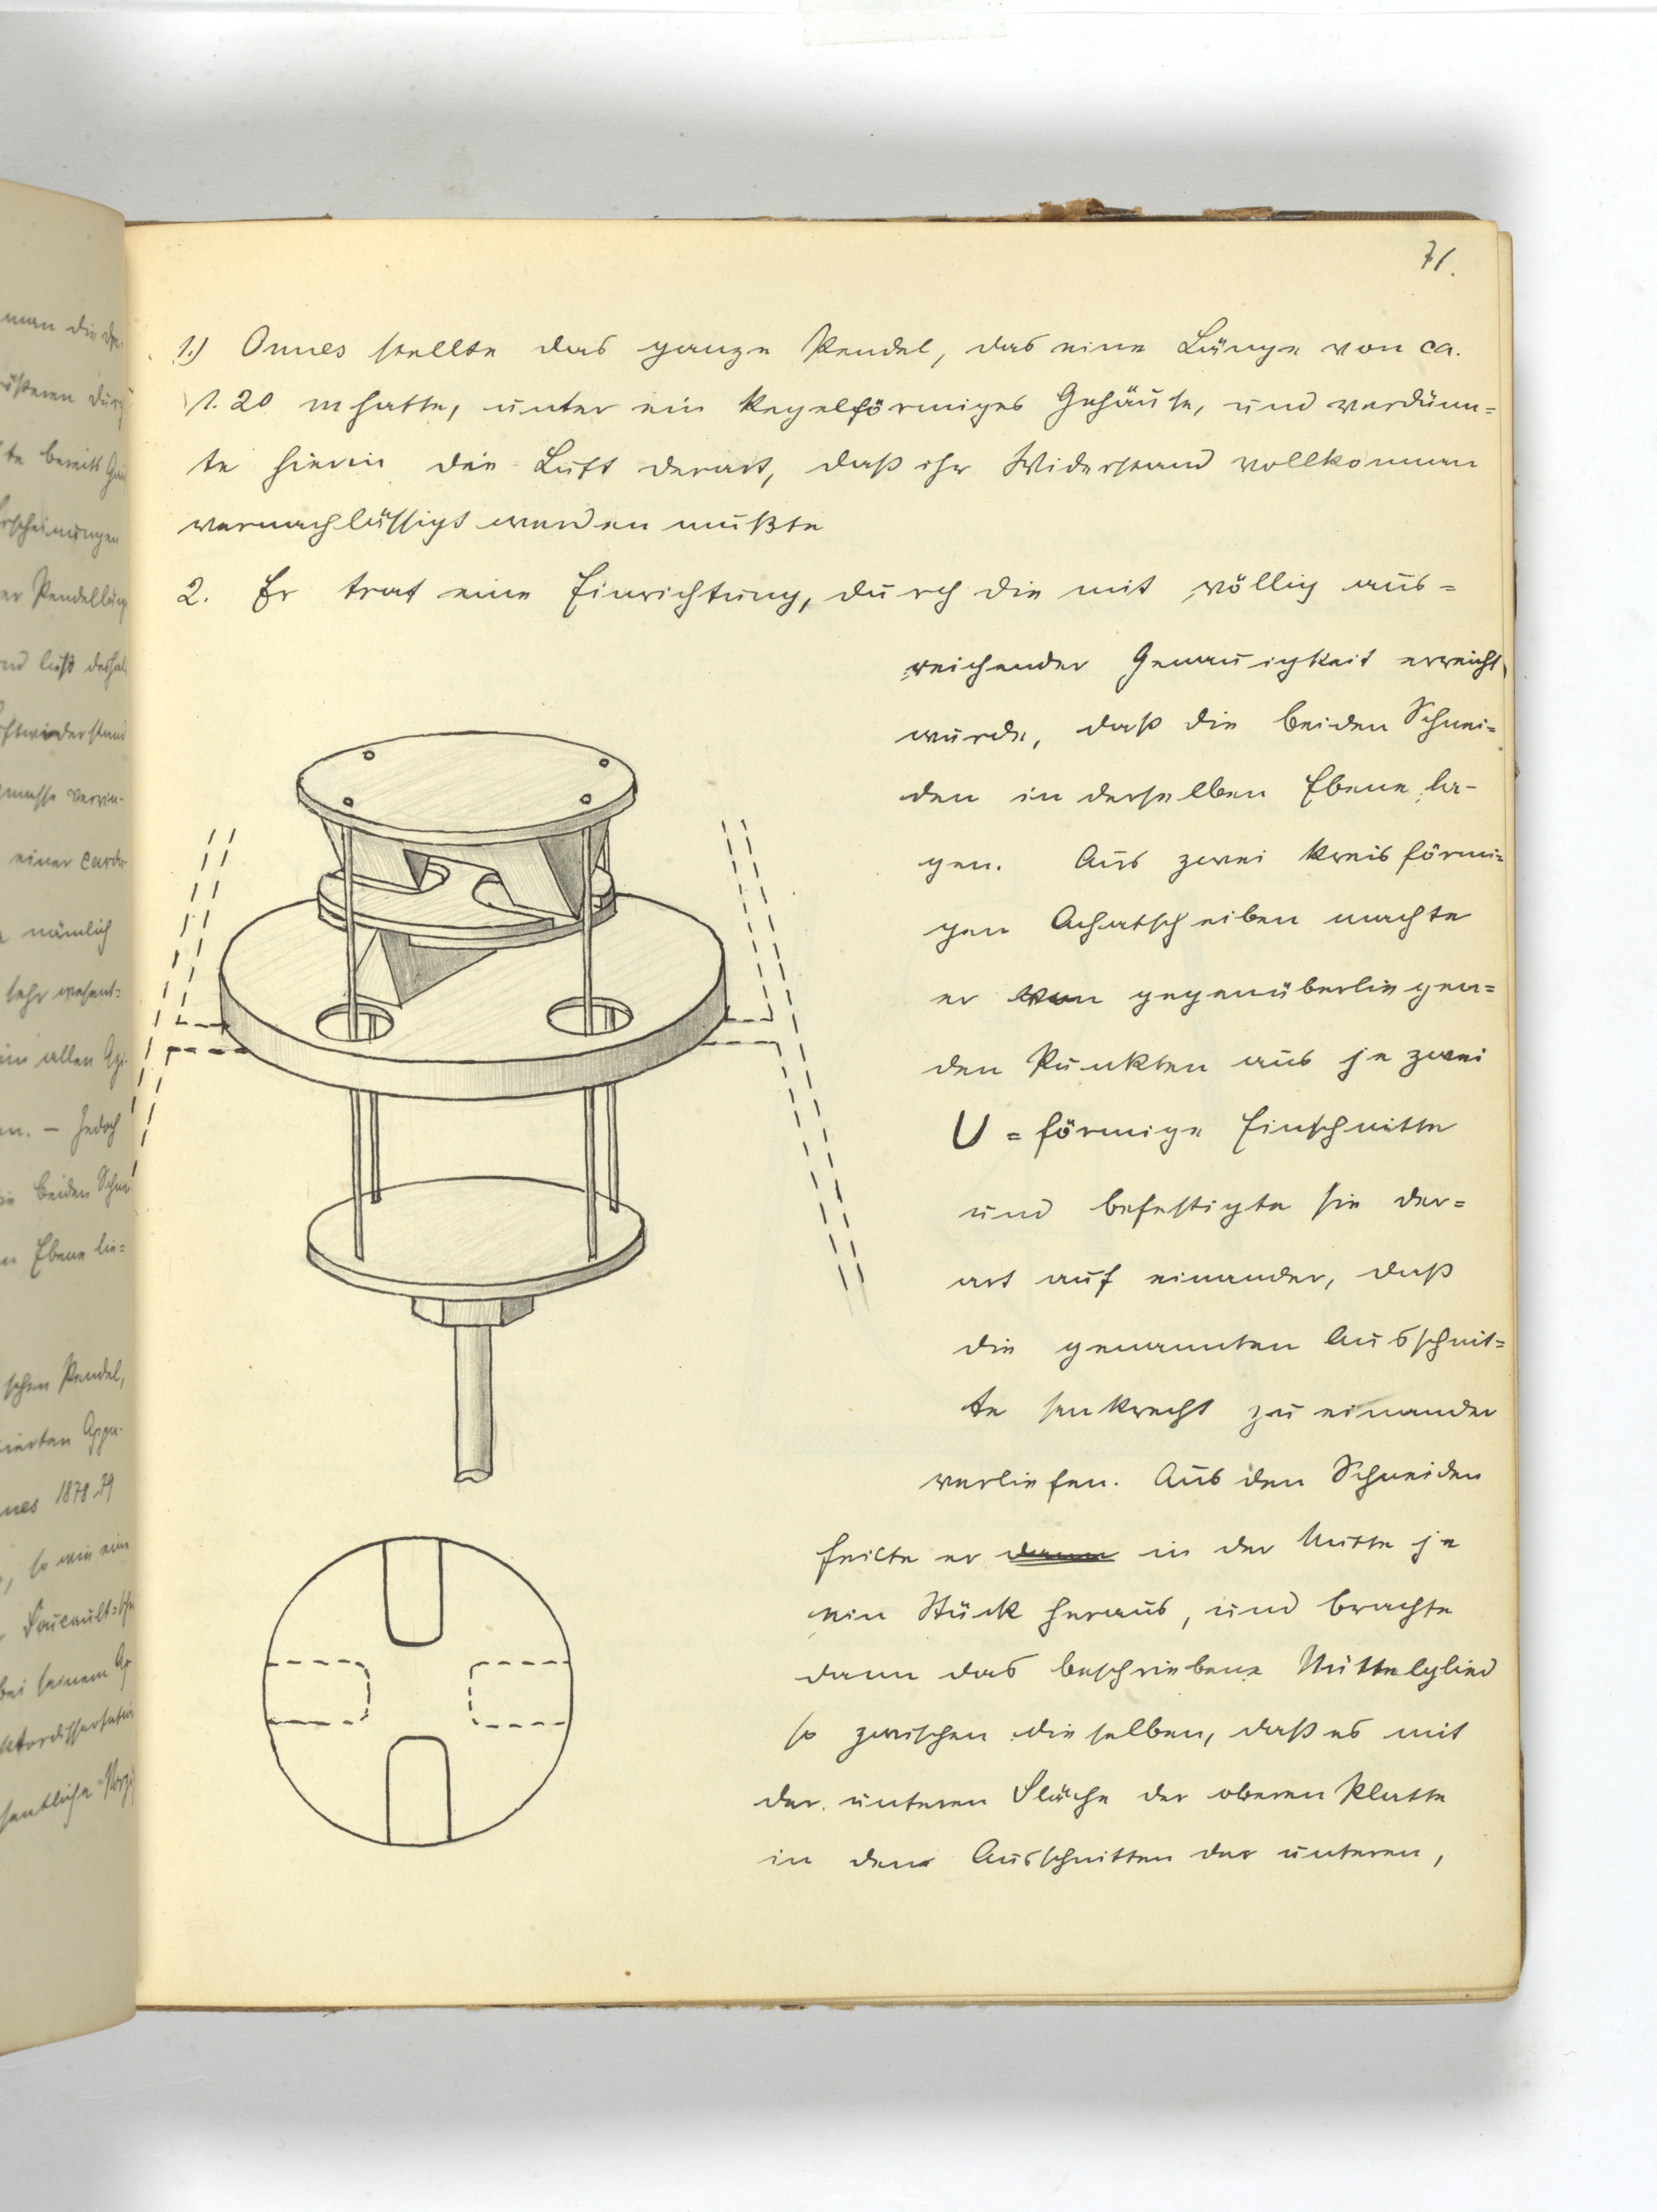 71.
1.) Onnes stellte das ganze Pendel, das eine Länge von ca.
1.20 m hatte, unter ein kegelförmiges Gehäuse, und verdünn=
te hierin die Luft derart, daß ihr Widerstand vollkommen
vernachlässigt werden mußte
2. Er traf eine Einrichtung, durch die mit völlig aus=
reichender Genauigkeit erreicht
wurde, daß die beiden Schnei=
den in derselben Ebene la-
gen. Aus zwei kreisförmi=
gen Achatscheiben machte
er von gegenüberliegen=
den Punkten aus je zwei
U=förmige Einschnitte
und befestigte sie der=
art auf einander, daß
die genannten Ausschnit=
te senkrecht zu einander
verliefen. Aus den Schneiden
feilte er dann in der Mitte je
ein Stück heraus, und brachte
dann das beschriebene Mittelglied
so zwischen dieselben, daß es mit
der unteren Fläche der oberen Platte
in den Ausschnitten der unteren,
man die
bereits
Erscheinungen
Pendellänge
einer
nämlich
sehr wesent=
in allen
en. — Jedoch
die beiden
Ebene lie=
schen Pendel,
1878-79
so wie eine
bei seinem